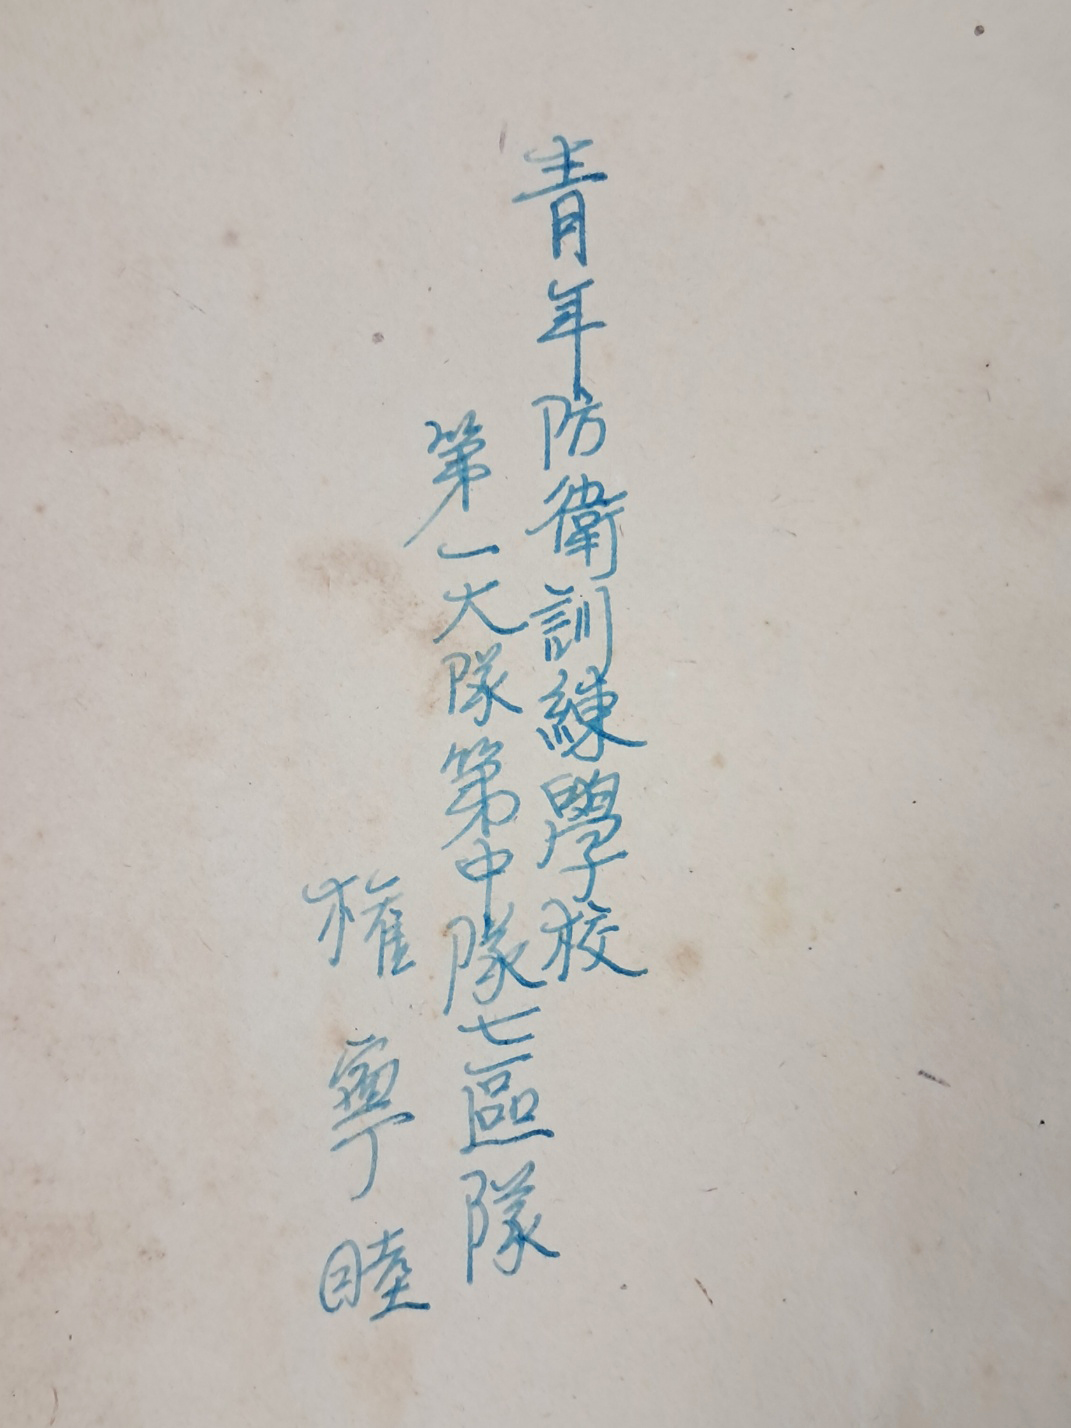 青年防衛訓練學校
第一大隊第中隊七區隊
權寧睦